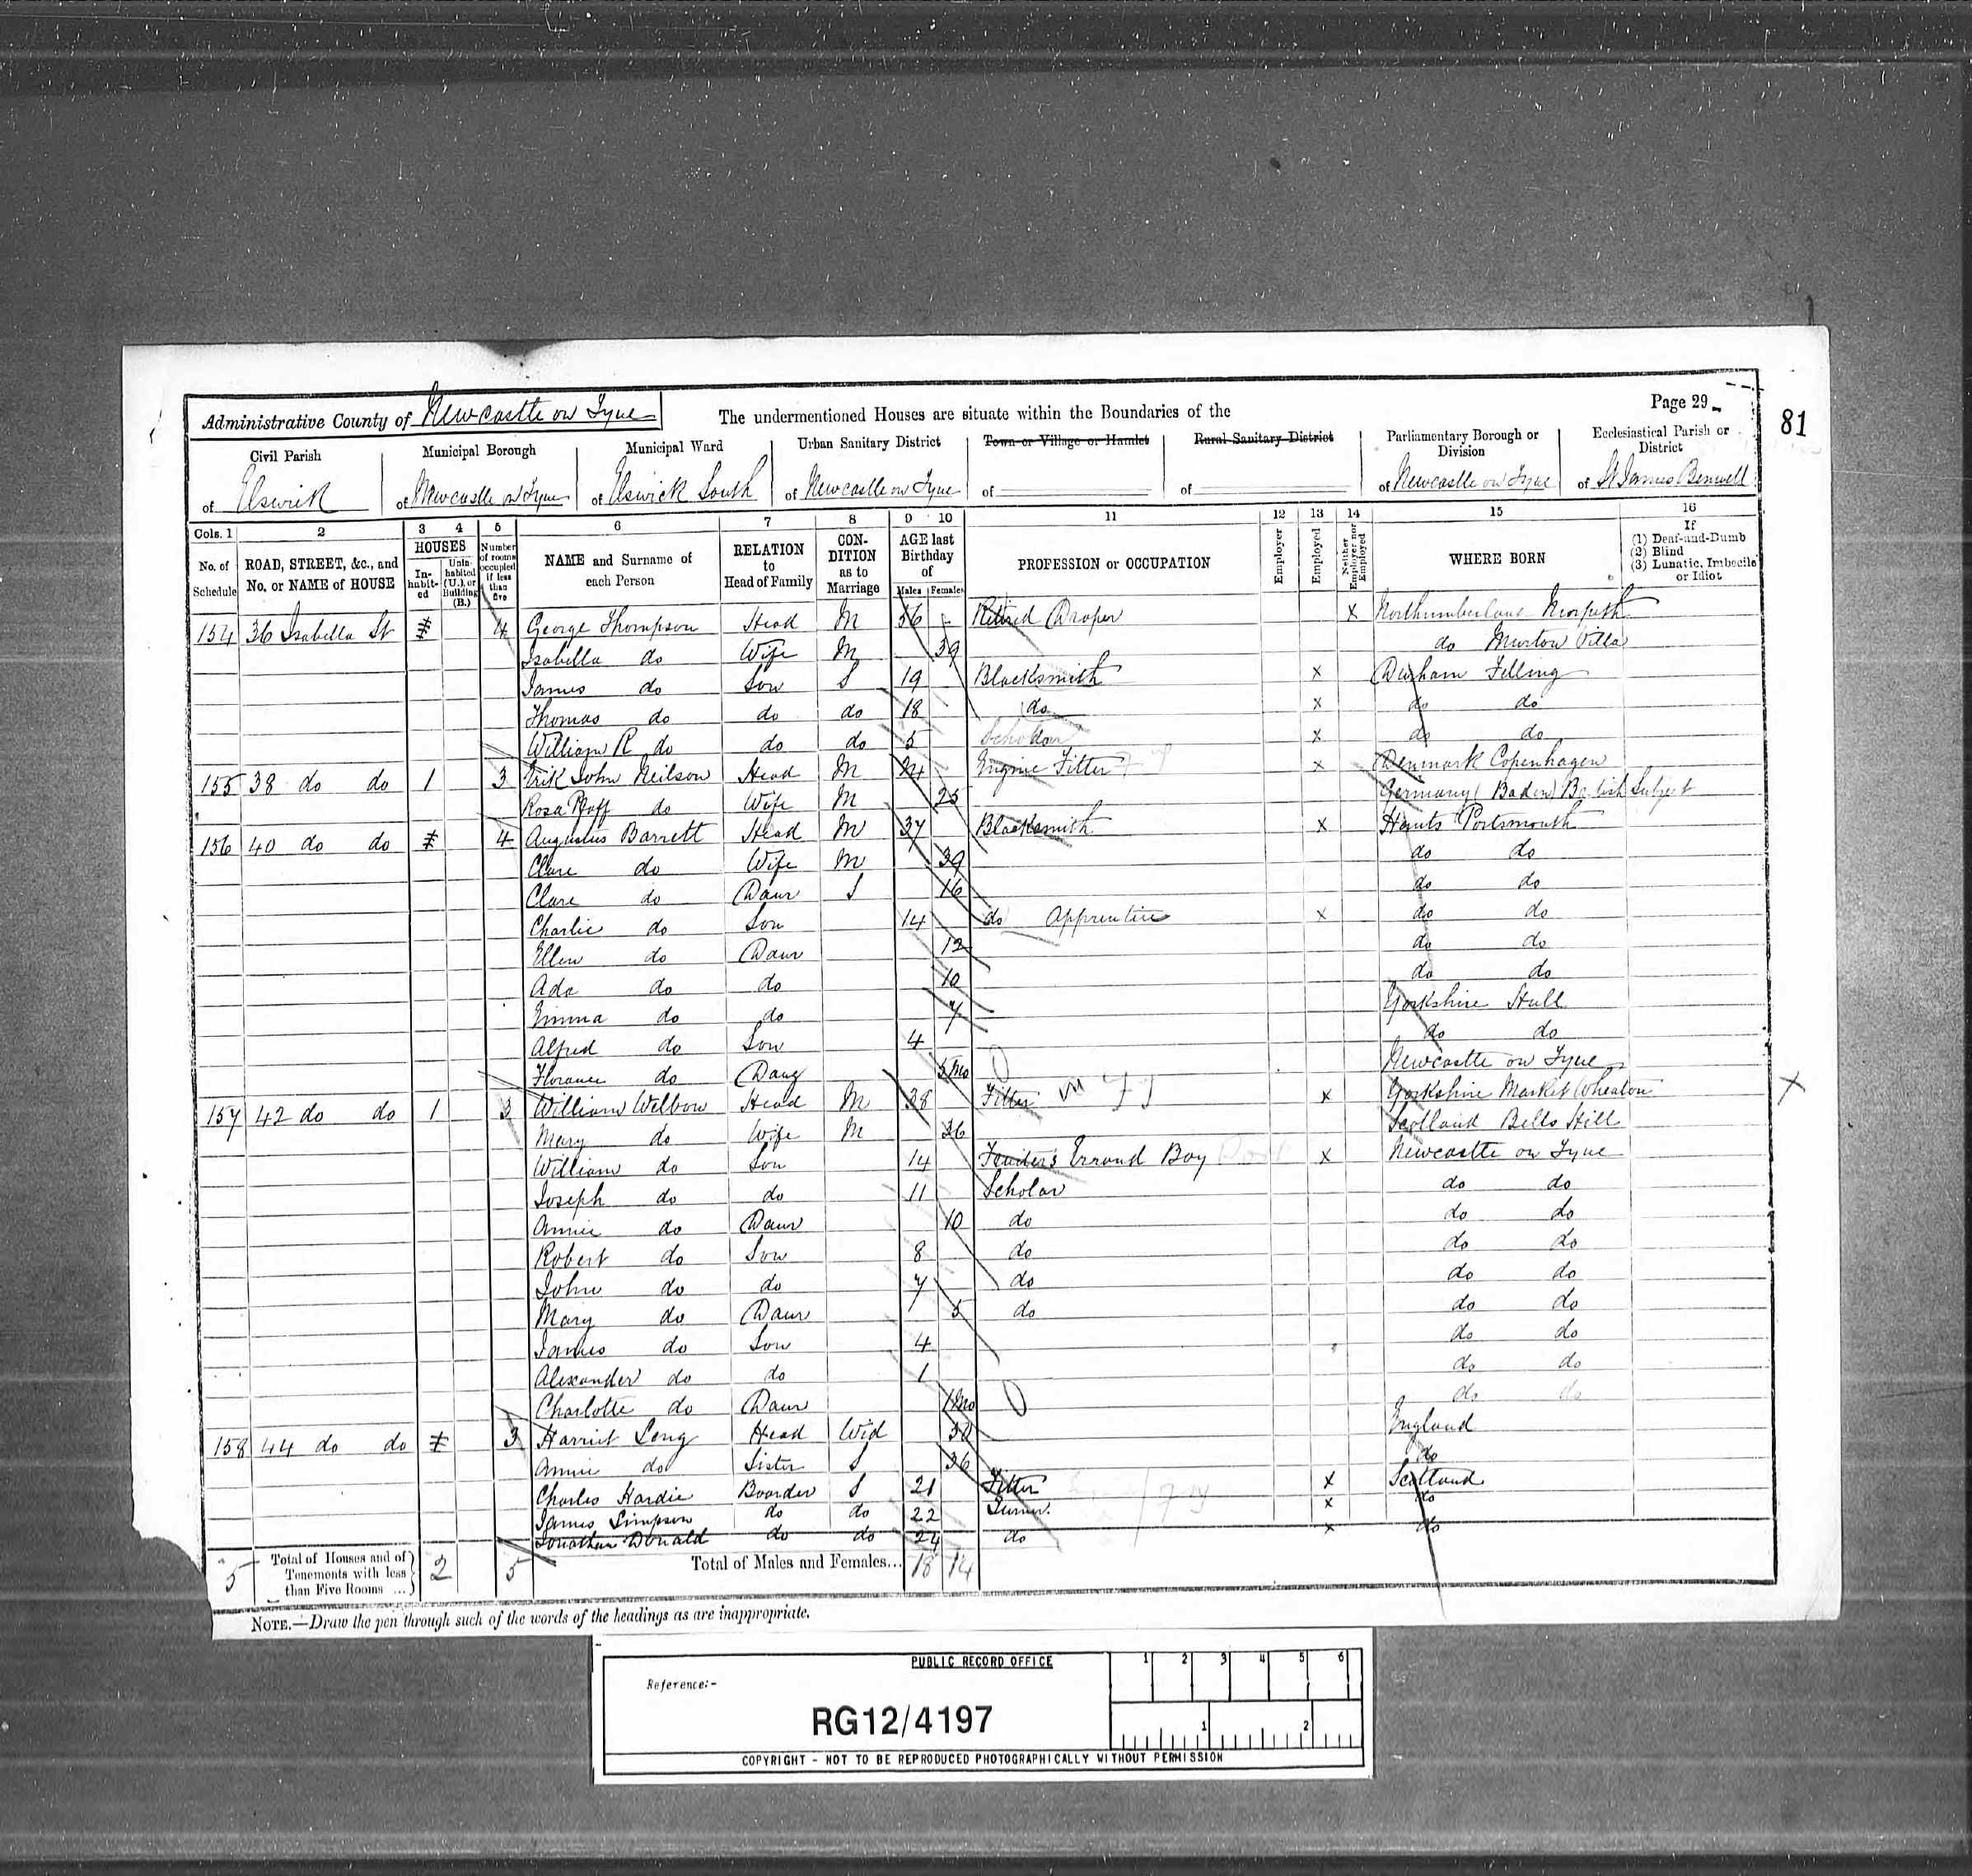 Administrative County of Newcastle on Tyne The undermentioned Houses are situate within the Boundaries of the Page 29
81
Civil Parish Municipal Borough Municipal Ward Urban Sanitary District Town or Village or Hamlet Rural Sanitary District Parliamentary Borough or Division Ecclesiastical Parish or District
of Elswick of Newcastle on Tyne of Elswick South of Newcastle on Tyne of of of Newcastle on Tyne of St James Benwell
Cols. 1 2 3 4 5 6 7 8 9 10 11 12 13 14 15 16
No. of Schedule ROAD, STREET, &c., and No. or NAME of HOUSE HOUSES Inhabited Uninhabited (U.), or Building (B.) Number of rooms occupied if less than five NAME and Surname of each Person RELATION to Head of Family CONDITION as to Marriage AGE last Birthday of Males Females PROFESSION or OCCUPATION Employer Employed Neither Employer nor Employed WHERE BORN If (1) Deaf-and-Dumb (2) Blind (3) Lunatic, Imbecile or Idiot
154 36 Isabella St 4 George Thompson Head M 56 Retired Draper X Northumberland Morpeth
Isabella do Wife M 39 do Murton Villa
James do Son S 19 Blacksmith X Durham Felling
Thomas do do do 18 do X do do
William R do do do 5 Scholar X do do
155 38 do do 1 3 Erik John Neilson Head M 24 Engine Fitter X Denmark Copenhagen
Rosa Pfaff do Wife M 25 Germany (Baden) British Subject
156 40 do do 4 Augustus Barrett Head M 37 Blacksmith X Hants Portsmouth
Clare do Wife M 39 do do
Clare do Daur S 16 do do
Charlie do Son 14 do Apprentice X do do
Ellen do Daur 12 do do
Ada do do 10 do do
Emma do do 7 Yorkshire Hull
Alfred do Son 4 do do
Florance do Daug 5 Mo Newcastle on Tyne
157 42 do do 1 3 William Welbow Head M 38 Fitter X Yorkshire Market Wheaton
Mary do Wife M 36 Scotland Bells Hill
William do Son 14 Errand Boy X Newcastle on Tyne
Joseph do do 11 Scholar do do
Annie do Daur 10 do do do
Robert do Son 8 do do do
John do do 7 do do do
Mary do Daur 5 do do do
James do Son 4 do do
Alexander do do 1 do do
Charlotte do Daur 1 Mo do do
158 44 do do 3 Harriet Leng Head Wid 38 England
Annie do Sister S 36 do
Charles Hardie Boarder S 21 Fitter X Scotland
James Simpson do do 22 Turner X do
Jonathan Donald do do 24 do X do
5 Total of Houses and of Tenements with less than Five Rooms ... 2 5 Total of Males and Females... 18 14
NOTE.—Draw the pen through such of the words of the headings as are inappropriate.
PUBLIC RECORD OFFICE 1 2 3 4 5 6
Reference:-
RG12/4197 1 2
COPYRIGHT - NOT TO BE REPRODUCED PHOTOGRAPHICALLY WITHOUT PERMISSION